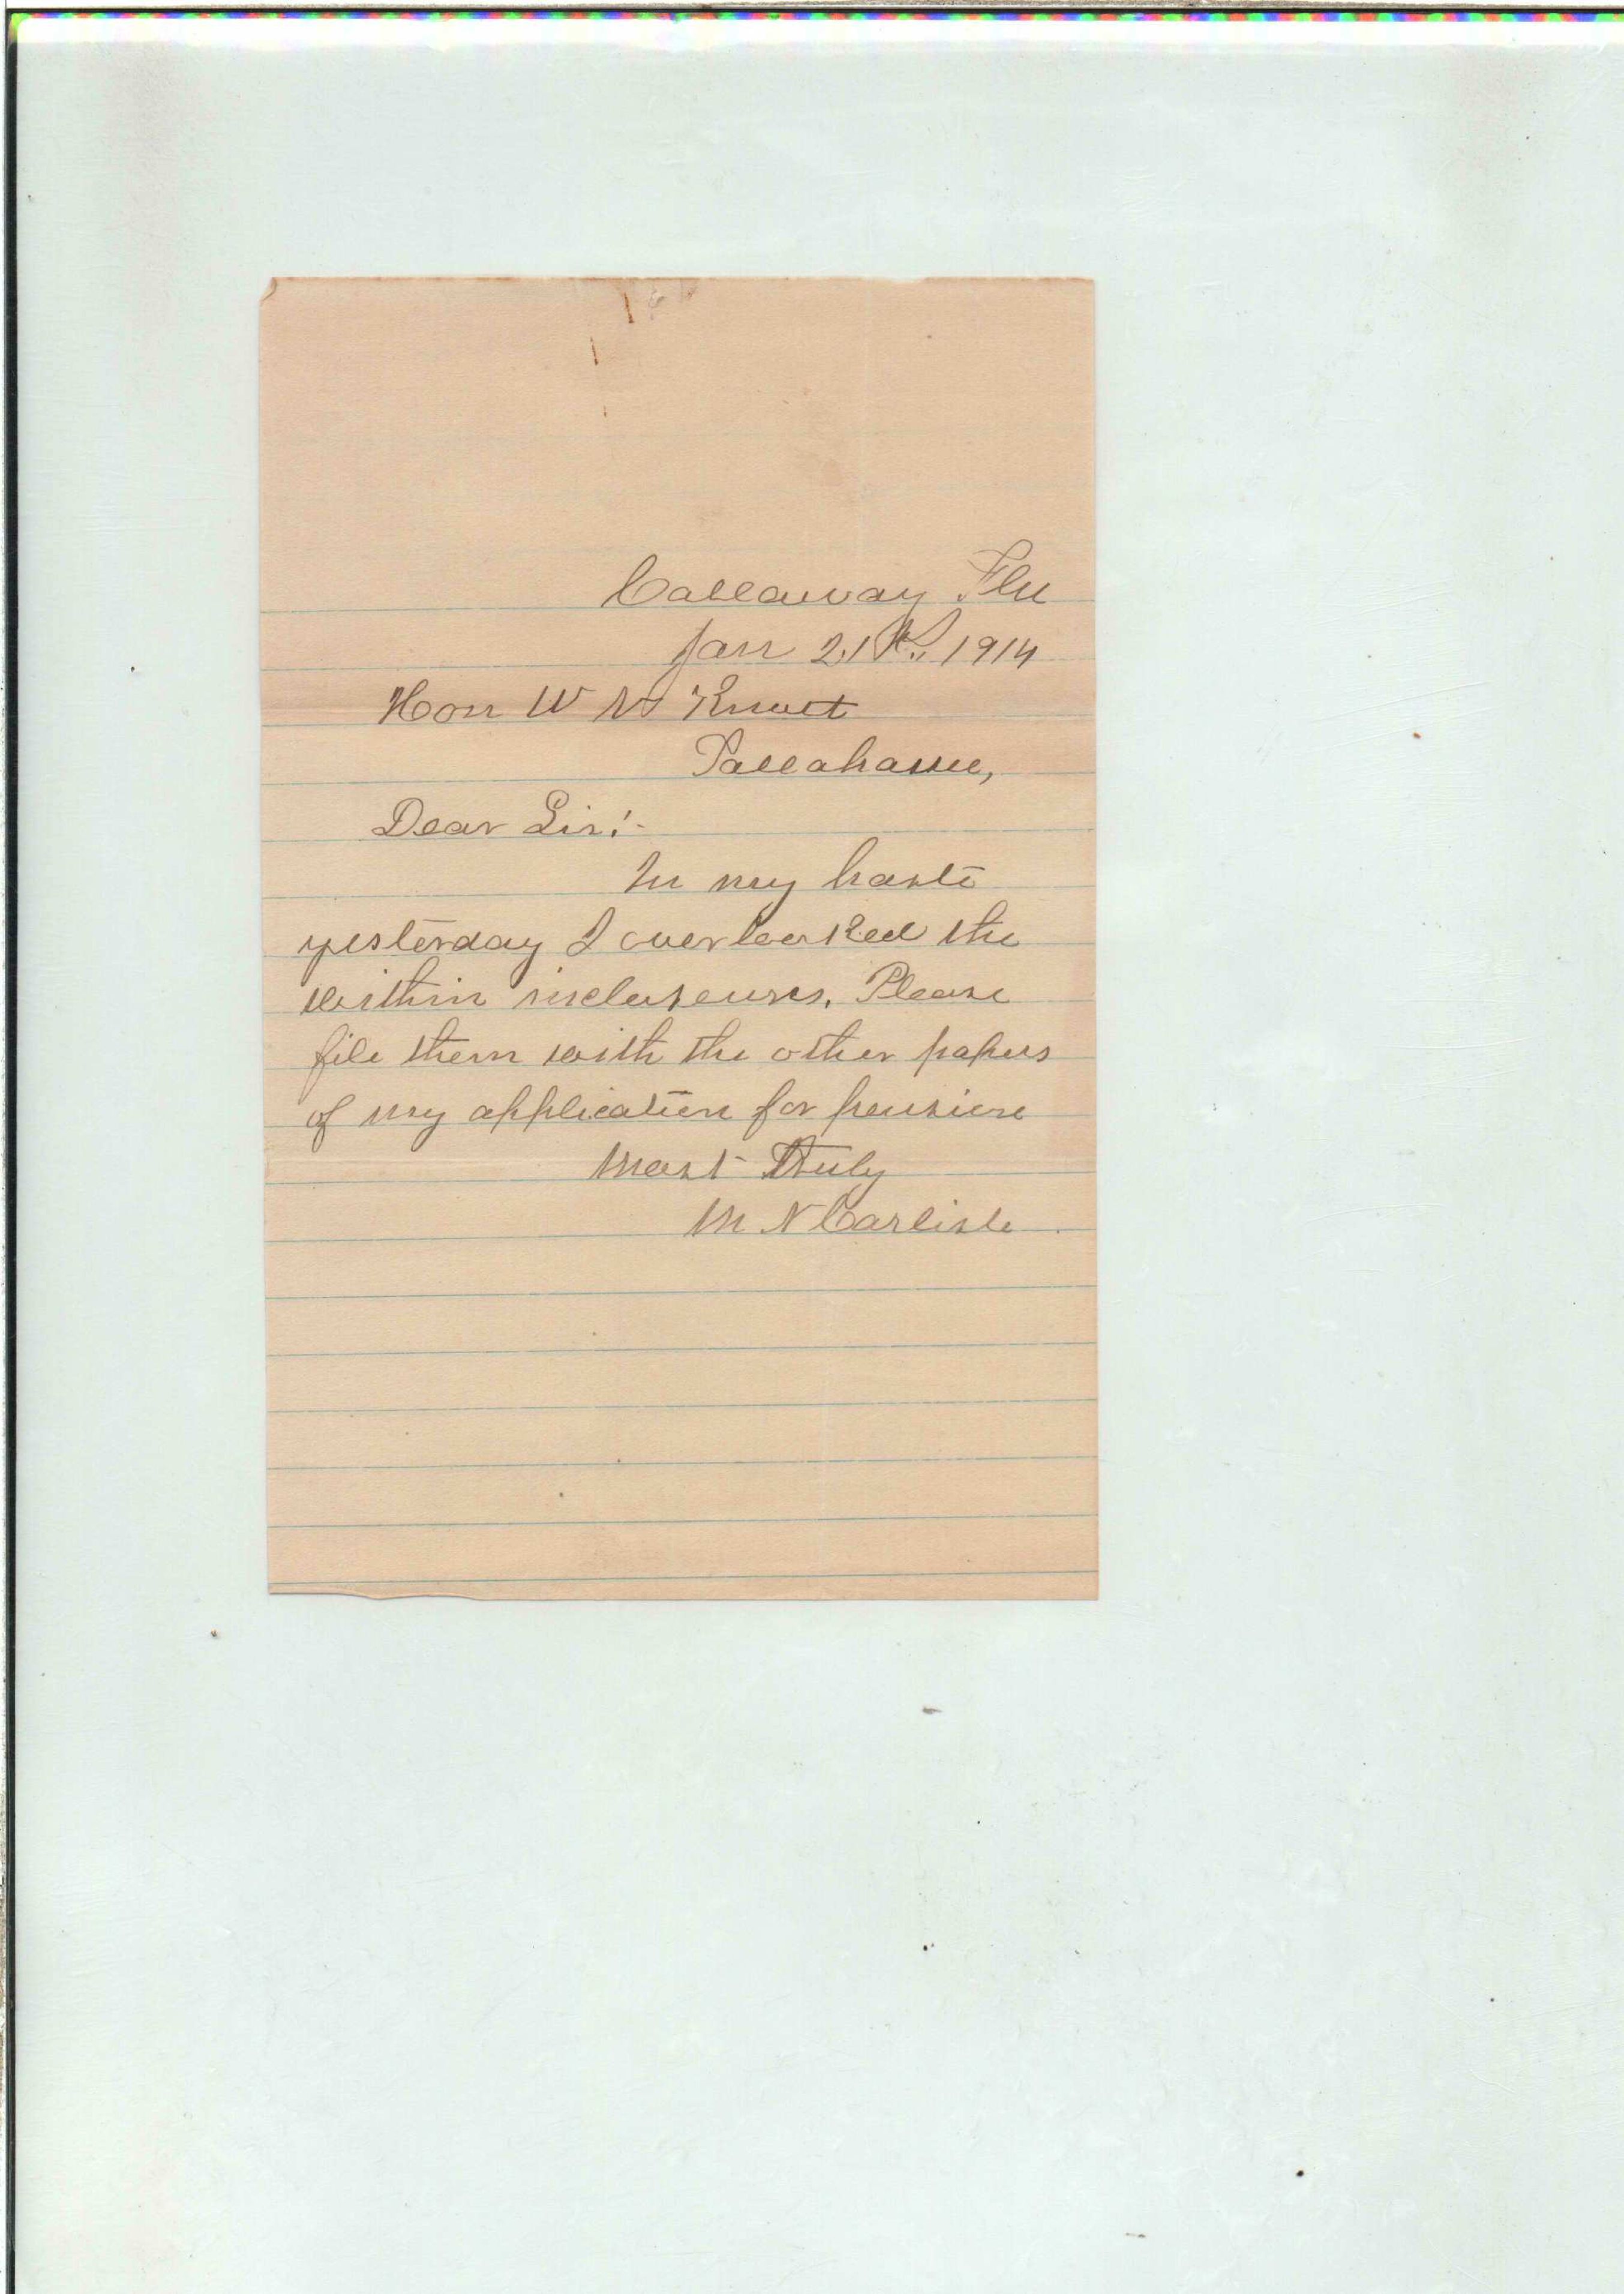 Callaway Fla
Jan 21st, 1914
Hon W V Knott
Tallahassee,
Dear Sir:-
In my haste
yesterday I overlooked the
within inclosures. Please
file them with the other papers
of my application for pension
Most Truly
M N Carlisle